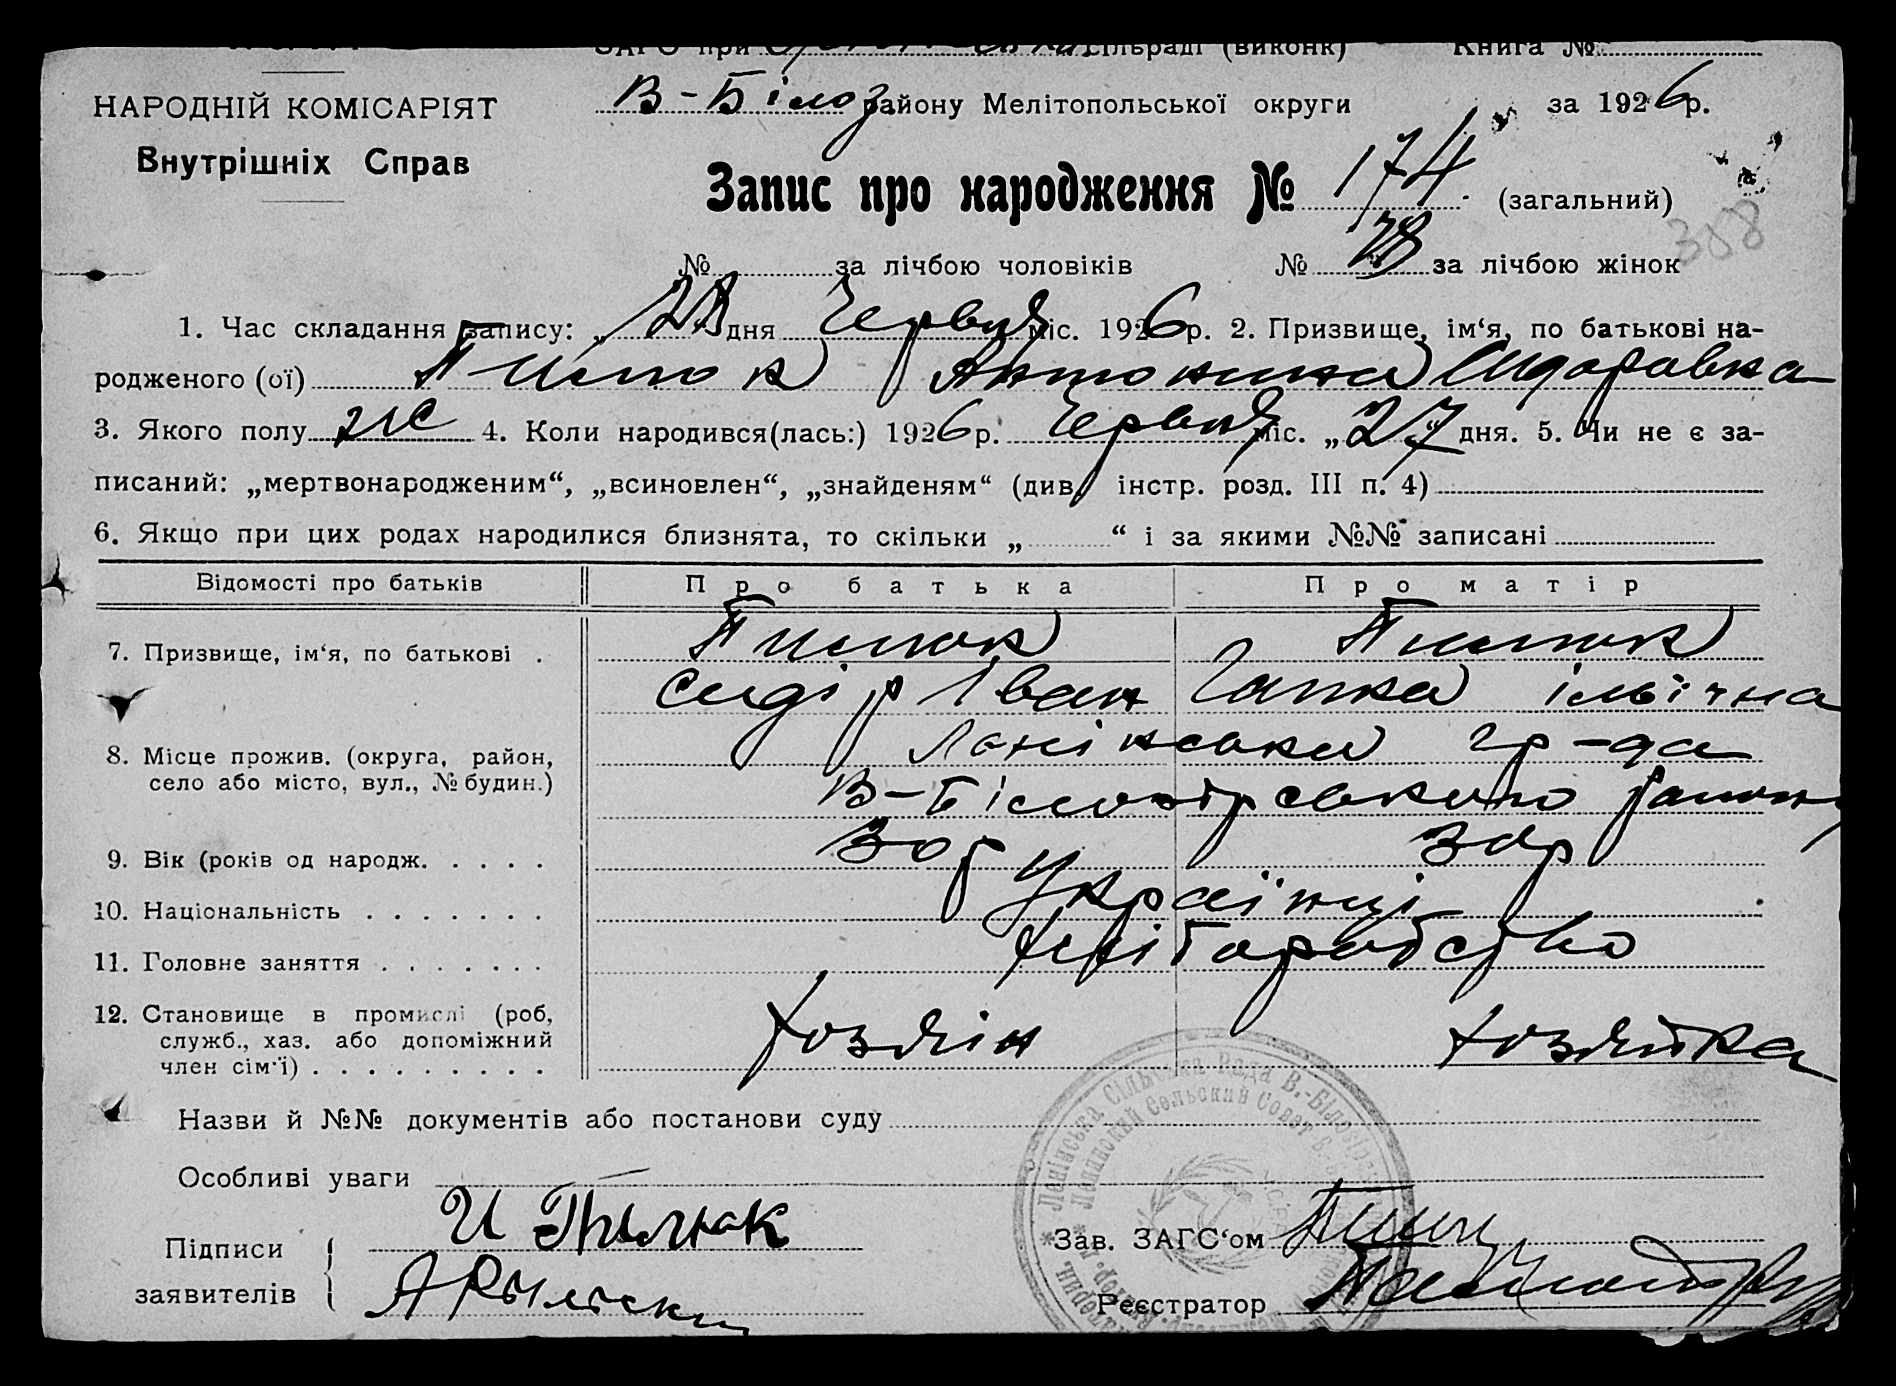 ЗАГС при сільраді (виконк) Книга №
НАРОДНІЙ КОМІСАРІЯТ В-Білоз району Мелітопольської округи за 1926р.
Внутрішніх Справ
Запис про народження № 174 (загальний)
388
№ за лічбою чоловіків № 78 за лічбою жінок
1. Час складання запису: „28 дня Червця міс. 1926р. 2. Призвище, ім‘я, по батькові на-
родженого (ої) Пилюк Антонина Сидоравна
3. Якого полу жс 4. Коли народився(лась:) 1926р. Червця міс. „27“ дня. 5. Чи не є за-
писаний: „мертвонародженим“, „всиновлен“, „знайденям“ (див. інстр. розд. III п. 4)
6. Якщо при цих родах народилися близнята, то скільки „ “ і за якими №№ записані
Відомості про батьків Про батька Про матір
7. Призвище, ім‘я, по батькові . Пилюк Пилюк
Сидір Іван Гапка ільїчна
8. Місце прожив. (округа, район, гр-да
село або місто, вул., № будин.) В-Білозірського району
9. Вік (років од народж. . . . . 30р 30р
10. Національність . . . . . . . Українці
11. Головне заняття . . . . . . . хліборобство
12. Становище в промислі (роб,
служб., хаз. або допоміжний хозяін хозяйка
член сім‘ї) . . . . . . . . .
Назви й №№ документів або постанови суду
Особливі уваги
Підписи И Пилюк Зав. ЗАГС‘ом
заявителів Реєстратор
Ленінська Сільська Рада В.-Білозірськ
Ленинский Сельский Совет